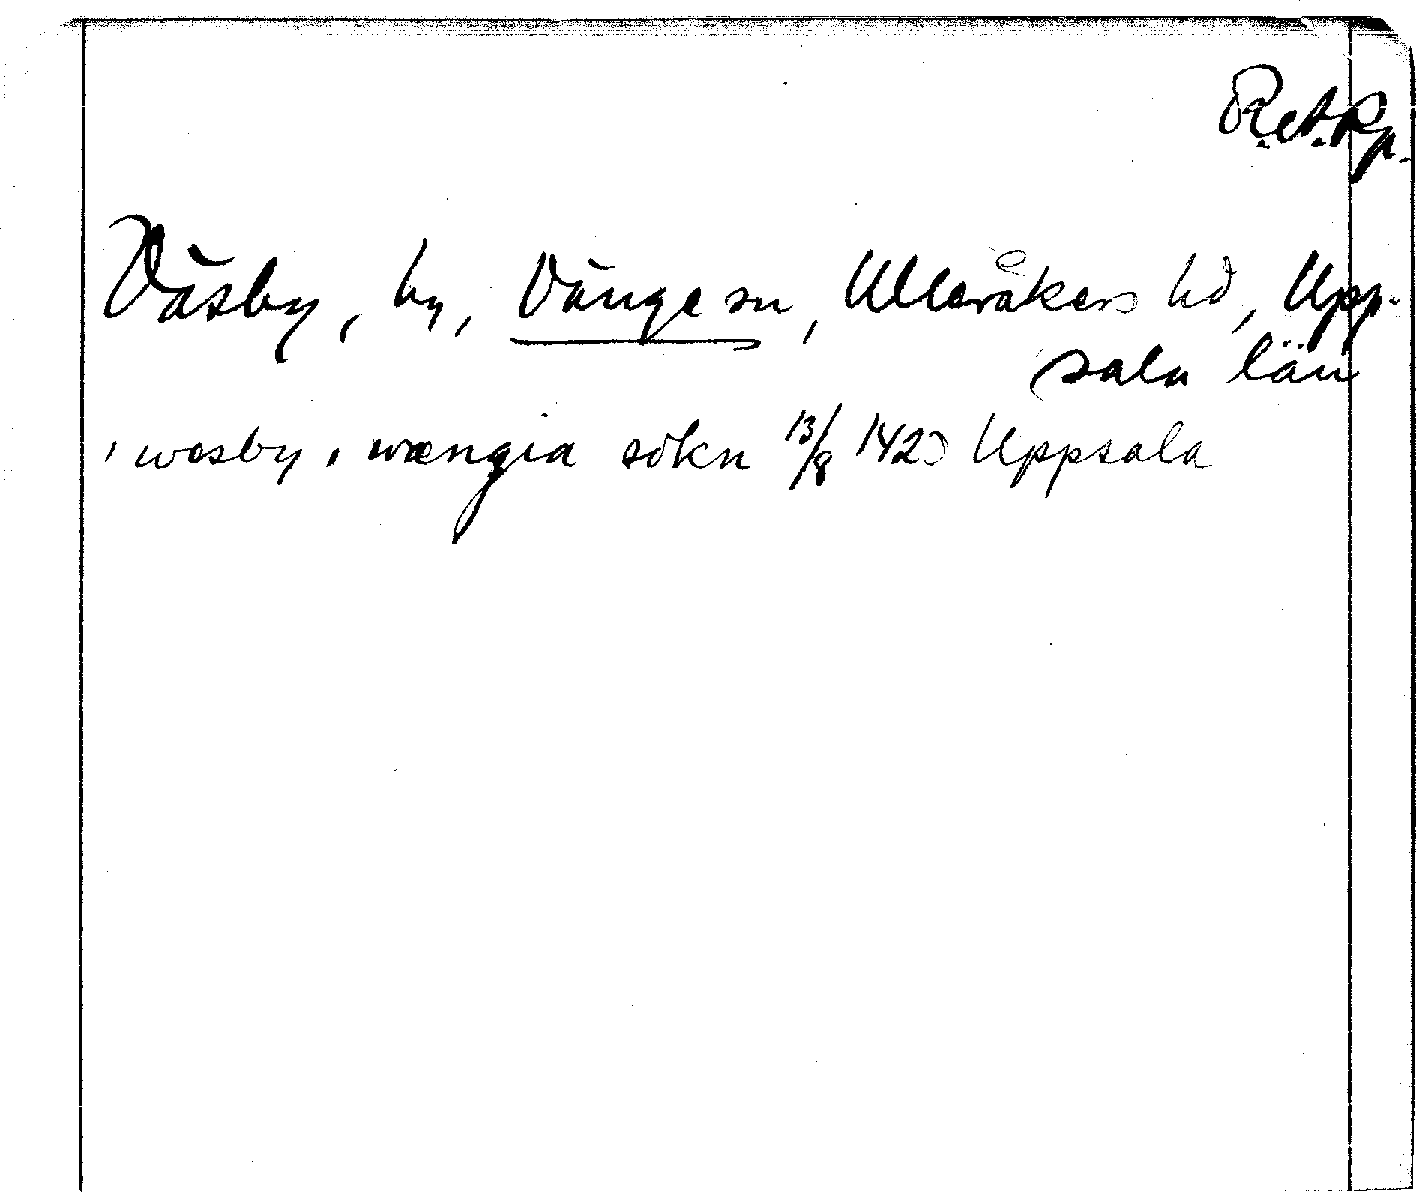 R.A.Pp.
Väsby, by, Vänge sn, Ulleråkers hd, Upp-
sala län
i wesby i wængia sokn 13/8 1420 Uppsala